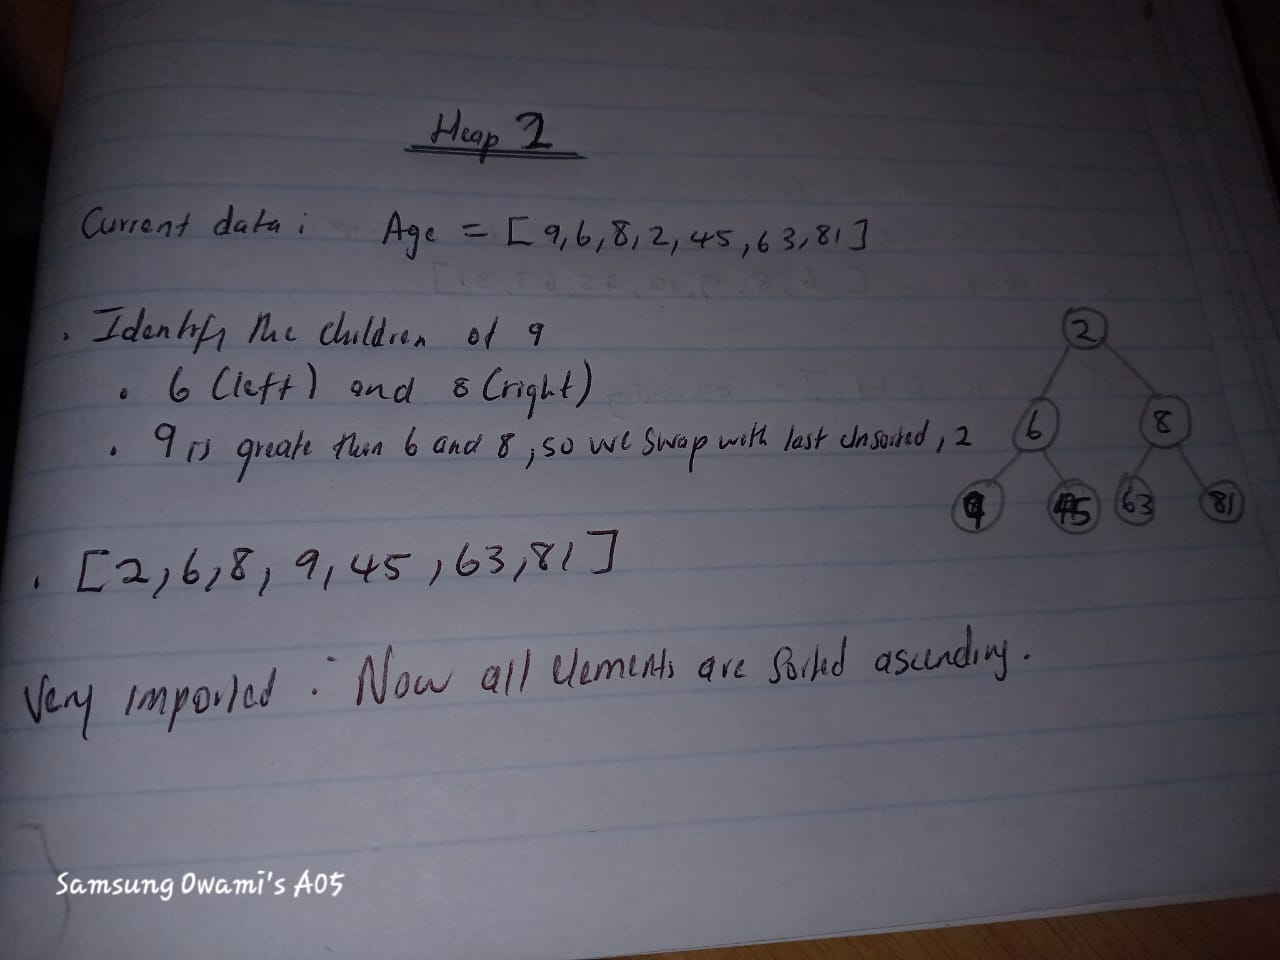 Heap 2
Current data: Age = [9,6,8,2,45,63,81]
. Identify the children of 9
. 6 (left) and 8 (right)
. 9 is greate than 6 and 8, so we swap with last unsorted, 2
. [2,6,8,9,45,63,81]
Very imported : Now all elements are sorted ascending.
2
6 8
9 45 63 81
Samsung Owami's A05